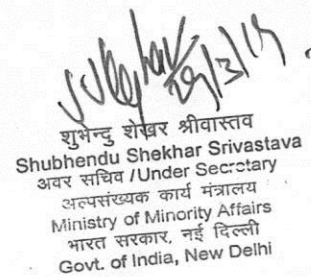 29/3/19
शुभेन्दु शेखर श्रीवास्तव
Shubhendu Shekhar Srivastava
अवर सचिव /Under Secretary
अल्पसंख्यक कार्य मंत्रालय
Ministry of Minority Affairs
भारत सरकार, नई दिल्ली
Govt. of India, New Delhi